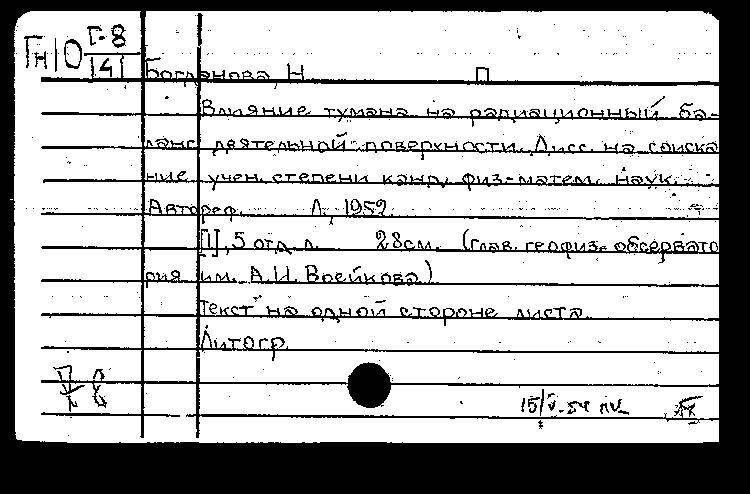 Гн10 Г-8
141
Богданова, Н. П
Влияние тумана на радиационный ба-
ланс деятельной поверхности. Дисс. на соиска
ние учен. степени канд. физ-матем. наук.
Автореф. Л., 1952.
[1], 5 отд. л. 28см. (Глав. геофиз. обсервато
рия им. А.И. Воейкова)
Текст на одной стороне листа
Литогр.
15/V-54